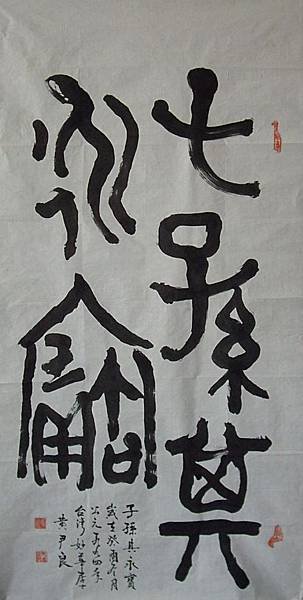 子孫其
永寶
子孫其永寶
歲在癸酉冬月
公元九四年
台灣
黃尹良